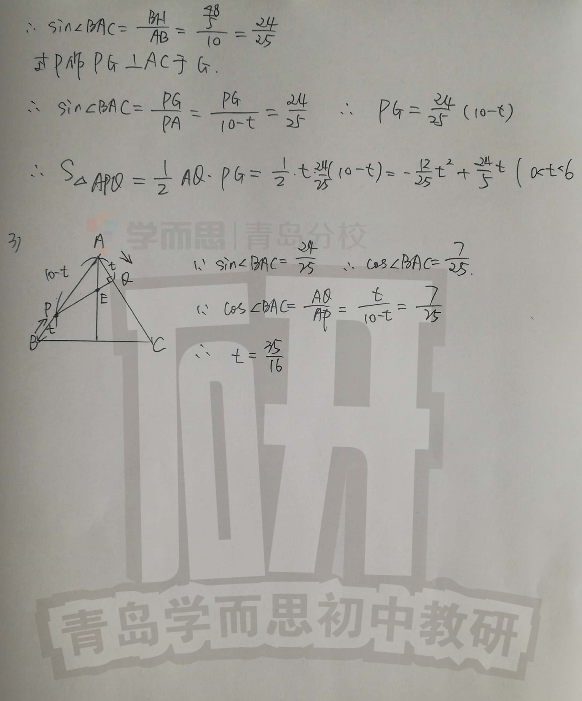 ∴ sin∠BAC = BH/AB = (48/5)/10 = 24/25
过P作PG⊥AC于G.
∴ sin∠BAC = PG/PA = PG/(10-t) = 24/25 ∴ PG = 24/25 (10-t)
∴ S△APQ = 1/2 AQ·PG = 1/2·t·24/25(10-t) = -12/25 t² + 24/5 t (0<t<6
学而思|青岛分校
3)
A
10-t
t
Q
E
P
t
B
C
∵ sin∠BAC = 24/25 ∴ cos∠BAC = 7/25.
∵ cos∠BAC = AQ/AP = t/(10-t) = 7/25
∴ t = 35/16
青岛学而思初中教研